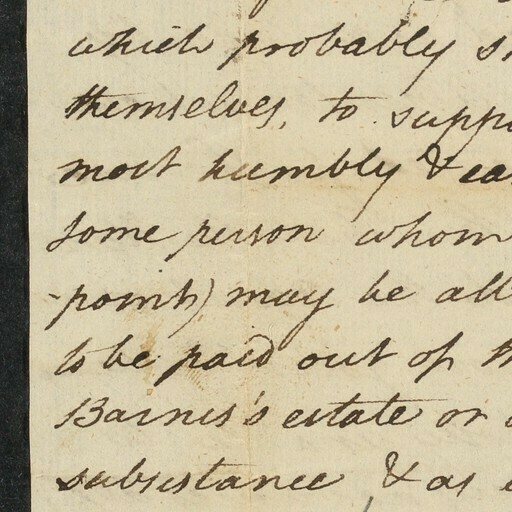 which probably s
themselves, to suppo
most humbly & ea
some person whom
-points) may be all
to be paid out of th
Barnes's estate or
subsistance & as